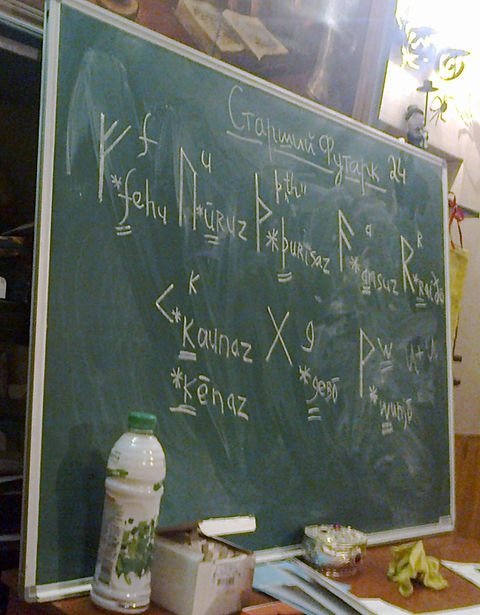 Старший Футарк 24
ᚠ f ᚢ u ᚦ þ "th" ᚨ a ᚱ R
*fehu *ūruz *þurisaz *ansuz *Raiðō
ᚲ K ᚷ g ᚹ w
*Kaunaz *gebō *wunjō
*Kēnaz